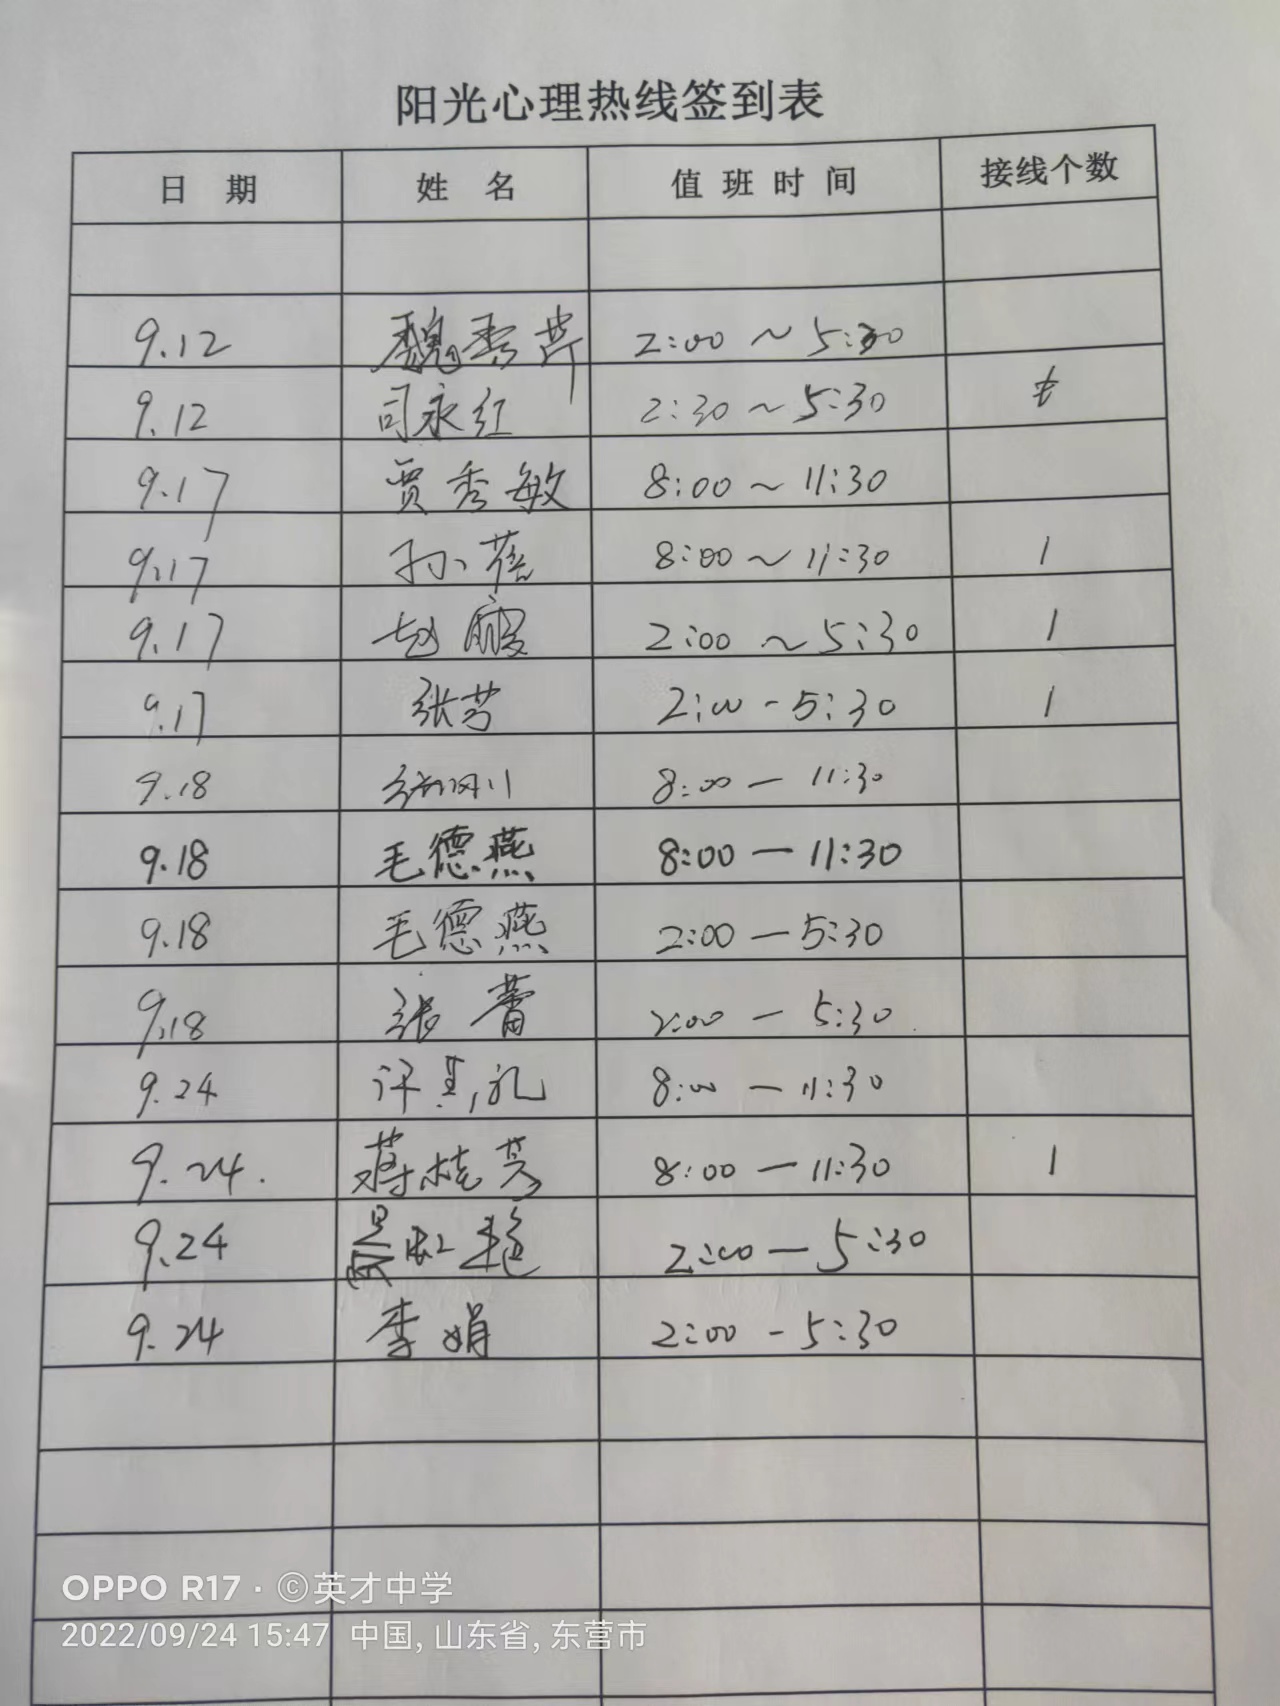 阳光心理热线签到表
日 期 姓 名 值 班 时 间 接线个数
9.12 魏秀芹 2:00 ~ 5:30
9.12 司永红 2:30 ~ 5:30
9.17 贾秀敏 8:00 ~ 11:30
9.17 孙蓓 8:00 ~ 11:30 1
9.17 赵霞 2:00 ~ 5:30 1
9.17 张芳 2:00 - 5:30 1
9.18 8:00 — 11:30
9.18 毛德燕 8:00 — 11:30
9.18 毛德燕 2:00 — 5:30
9.18 张蕾 2:00 — 5:30
9.24 许 礼 8:00 — 11:30
9.24. 蒋桂芳 8:00 — 11:30 1
9.24 2:00 — 5:30
9.24 李娟 2:00 - 5:30
OPPO R17 · ©英才中学
2022/09/24 15:47 中国, 山东省, 东营市